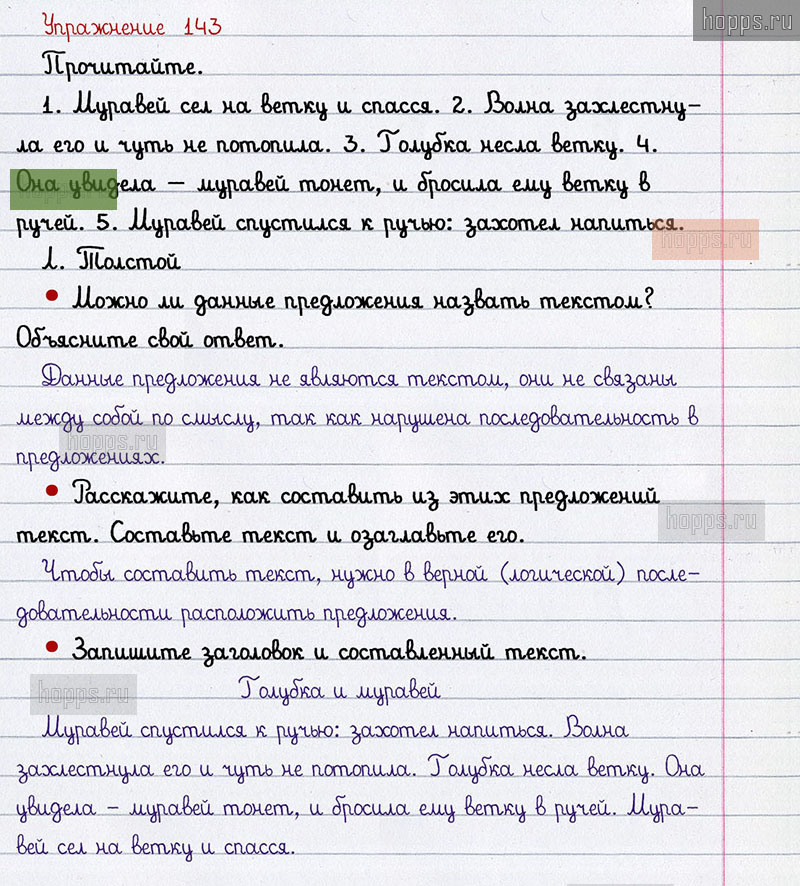 hopps.ru
Упражнение 143
Прочитайте.
1. Муравей сел на ветку и спасся. 2. Волна захлестну-
ла его и чуть не потопила. 3. Голубка несла ветку. 4.
Она увидела — муравей тонет, и бросила ему ветку в
ручей. 5. Муравей спустился к ручью: захотел напиться.
hopps.ru
Л. Толстой
• Можно ли данные предложения назвать текстом?
Объясните свой ответ.
Данные предложения не являются текстом, они не связаны
между собой по смыслу, так как нарушена последовательность в
hopps.ru
предложениях.
• Расскажите, как составить из этих предложений
hopps.ru
текст. Составьте текст и озаглавьте его.
Чтобы составить текст, нужно в верной (логической) после-
довательности расположить предложения.
• Запишите заголовок и составленный текст.
hopps.ru
Голубка и муравей
Муравей спустился к ручью: захотел напиться. Волна
захлестнула его и чуть не потопила. Голубка несла ветку. Она
увидела – муравей тонет, и бросила ему ветку в ручей. Мура-
вей сел на ветку и спасся.